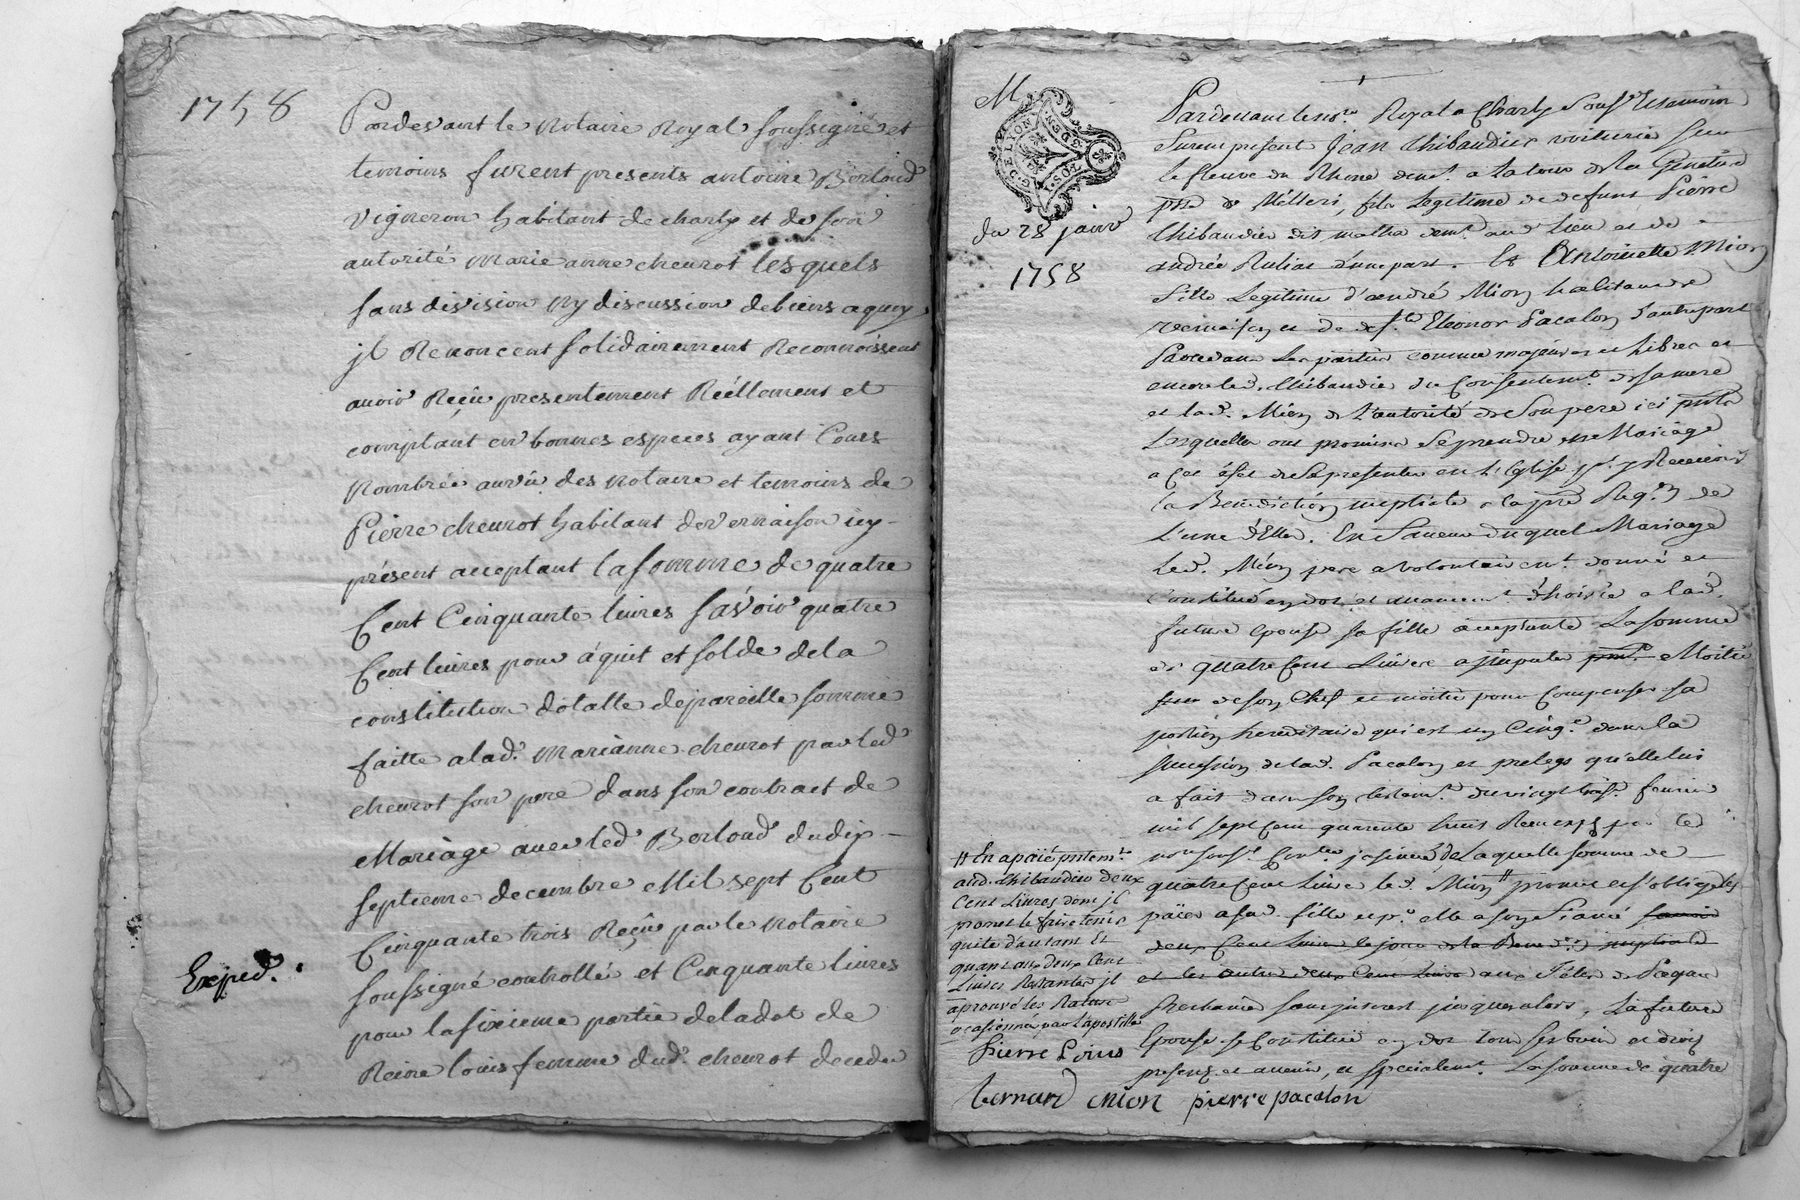 1758
Pardevant le Notaire Royal soussigné et
temoins furent presents antoine Berloud
vigneron habitant de charly et de son
autorité Marie anne cheurot lesquels
sans division Ny discussion de biens a quoy
jl Renoncent solidairement Reconnoissent
avoir Reçü presentement Réëllement et
comptant en bonnes especes ayant Cours
Nombréé au vü des Notaire et temoins de
Pierre cheurot habitant de vernaison icy
présent acceptant la somme de quatre
Cent Cinquante livres savoir quatre
Cent livres pour aquit et solde de la
constitution dotalle de pareille somme
faitte a lad. Marianne cheurot par led
cheurot son pere dans son contract de
Mariage avec led Berloud du dix
septieme decembre Mil sept Cent
Cinquante trois Reçu par le Notaire
soussigné controllé et Cinquante livres
pour la sixieme partie de la dot de
Reine louis femme dud. cheurot decedee
Exped.
M
G. DE LYON
du 28 janv
1758
Pardevant le no.re Royal a Charly souss.é & temoin
furent present Jean thibaudier voiturier sur
le fleuve du Rhone dem.t a la tour de la
psse de Millery, fils Legitime de defunt Pierre
thibaudier dit matha dem.t aud Lieu et de
andrée Rulias d'une part. & Antoinette Mion
fille Legitime d'andré Mion habitant de
vernaison et de def.te Eleonor Pacalon d'autre part
Lesparties comme majeures et libres et
encore led. thibaudier du Consentem.t de sa mere
et lad. Mion de l'autorité de son pere ici pnt
Lesquelles ont promis se prendre en Mariage
a cet effet de se presenter en l'Eglise p.r y Recevoir
la Benediction nuptiale a la pre Req.on de
L'une d'Elles. En faveur duquel Mariage
Led. Mion pere a volontairem.t donné et
Constitué en dot et avancem.t d'hoirie a lad.
future epouse sa fille acceptante La somme
de quatre Cent Livres a imputer Moitié
sur de son Chef et moitié pour Compenser sa
portion hereditaire qui est un Cinq.e dans la
succession de lad. Pacalon et prelegs qu'elle lui
a fait dans son testam.t du vingt trois.e fevrier
mil sept Cent quarante trois Receu par
nousouss.é Con.lé De Laquelle somme de
quatre Cent Livres led. Mion # promet et s'oblige
païer a sad. fille et p.r elle a son Fiancé savoir
deux Cent Livres le jour de la Bened.on nuptiale
et les autres deux Cent Livres aux Fetes de
Prochaine sans interest jusques alors, La future
Epouse se Constitue en dot tous ses biens et droits
presents et avenir, et specialem.t La somme de quatre
# En a païé pntem.t
aud. thibaudier deux
Cent Livres dont jl
promet le faire tenir
quite d'autant Et
quant aux deux Cent
Livres Restantes jl
aprouvé les Rature
ocasionné par l'apostille
Pierre Loius
bernard mion pierre pacalon